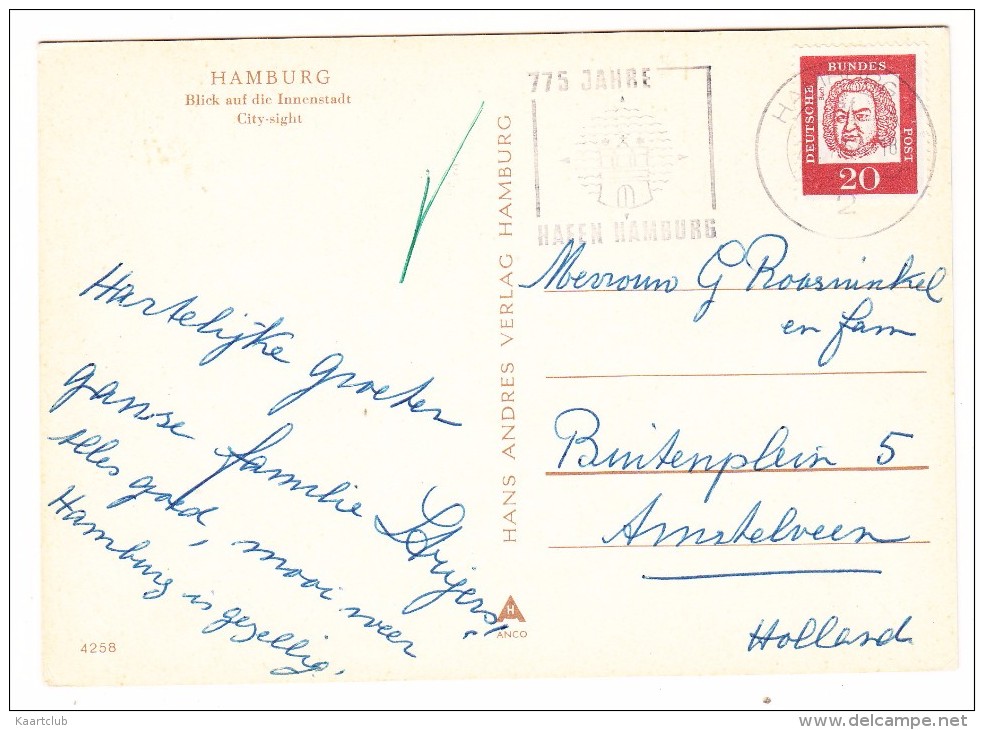 HAMBURG
Blick auf die Innenstadt
City-sight
775 JAHRE
HAFEN HAMBURG
DEUTSCHE BUNDES POST
Bach
20
2
HANS ANDRES VERLAG HAMBURG
Hartelijke groeten
ganse familie
alles goed, mooi weer
Hamburg is gezellig.
Mevrouw G
en fam
Buitenplein 5
Amstelveen
Holland
H
ANCO
4258
Kaartclub
www.delcampe.net